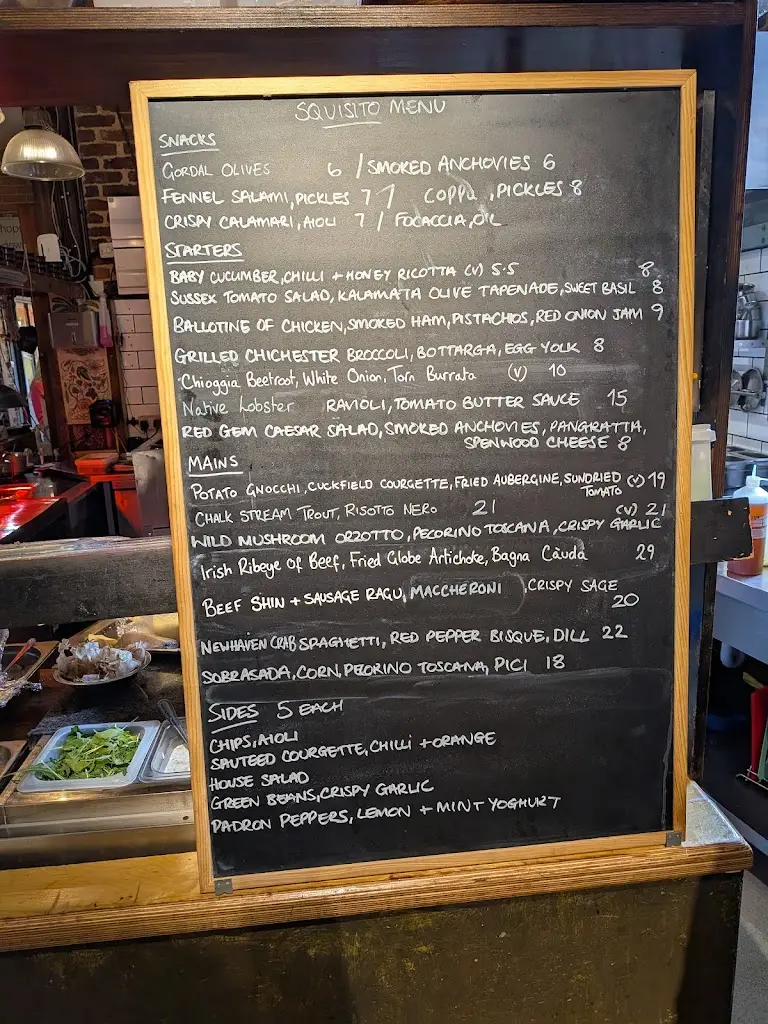 SQUISITO MENU
SNACKS
GORDAL OLIVES 6 / SMOKED ANCHOVIES 6
FENNEL SALAMI, PICKLES 7 / COPPA, PICKLES 8
CRISPY CALAMARI, AIOLI 7 / FOCACCIA, OIL
STARTERS
BABY CUCUMBER, CHILLI + HONEY RICOTTA (V) 5.5 8
SUSSEX TOMATO SALAD, KALAMATA OLIVE TAPENADE, SWEET BASIL 8
BALLOTINE OF CHICKEN, SMOKED HAM, PISTACHIOS, RED ONION JAM 9
GRILLED CHICHESTER BROCCOLI, BOTTARGA, EGG YOLK 8
Chioggia Beetroot, White Onion, Torn Burrata (V) 10
Native Lobster RAVIOLI, TOMATO BUTTER SAUCE 15
RED GEM CAESAR SALAD, SMOKED ANCHOVIES, PANGRATTA,
SPENWOOD CHEESE 8
MAINS
POTATO GNOCCHI, CUCKFIELD COURGETTE, FRIED AUBERGINE, SUNDRIED TOMATO (V) 19
CHALK STREAM TROUT, RISOTTO NERO 21
WILD MUSHROOM ORZOTTO, PECORINO TOSCANA, CRISPY GARLIC (V) 21
Irish Ribeye Of Beef, Fried Globe Artichoke, Bagna Càuda 29
BEEF SHIN + SAUSAGE RAGU, MACCHERONI, CRISPY SAGE
20
NEWHAVEN CRAB SPAGHETTI, RED PEPPER BISQUE, DILL 22
SOBRASADA, CORN, PECORINO TOSCANA, PICI 18
SIDES 5 EACH
CHIPS, AIOLI
SAUTEED COURGETTE, CHILLI + ORANGE
HOUSE SALAD
GREEN BEANS, CRISPY GARLIC
PADRON PEPPERS, LEMON + MINT YOGHURT